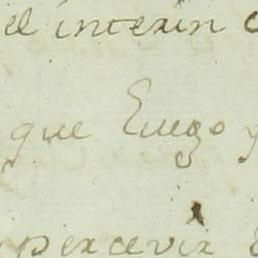 el interin
que Luego
percevir